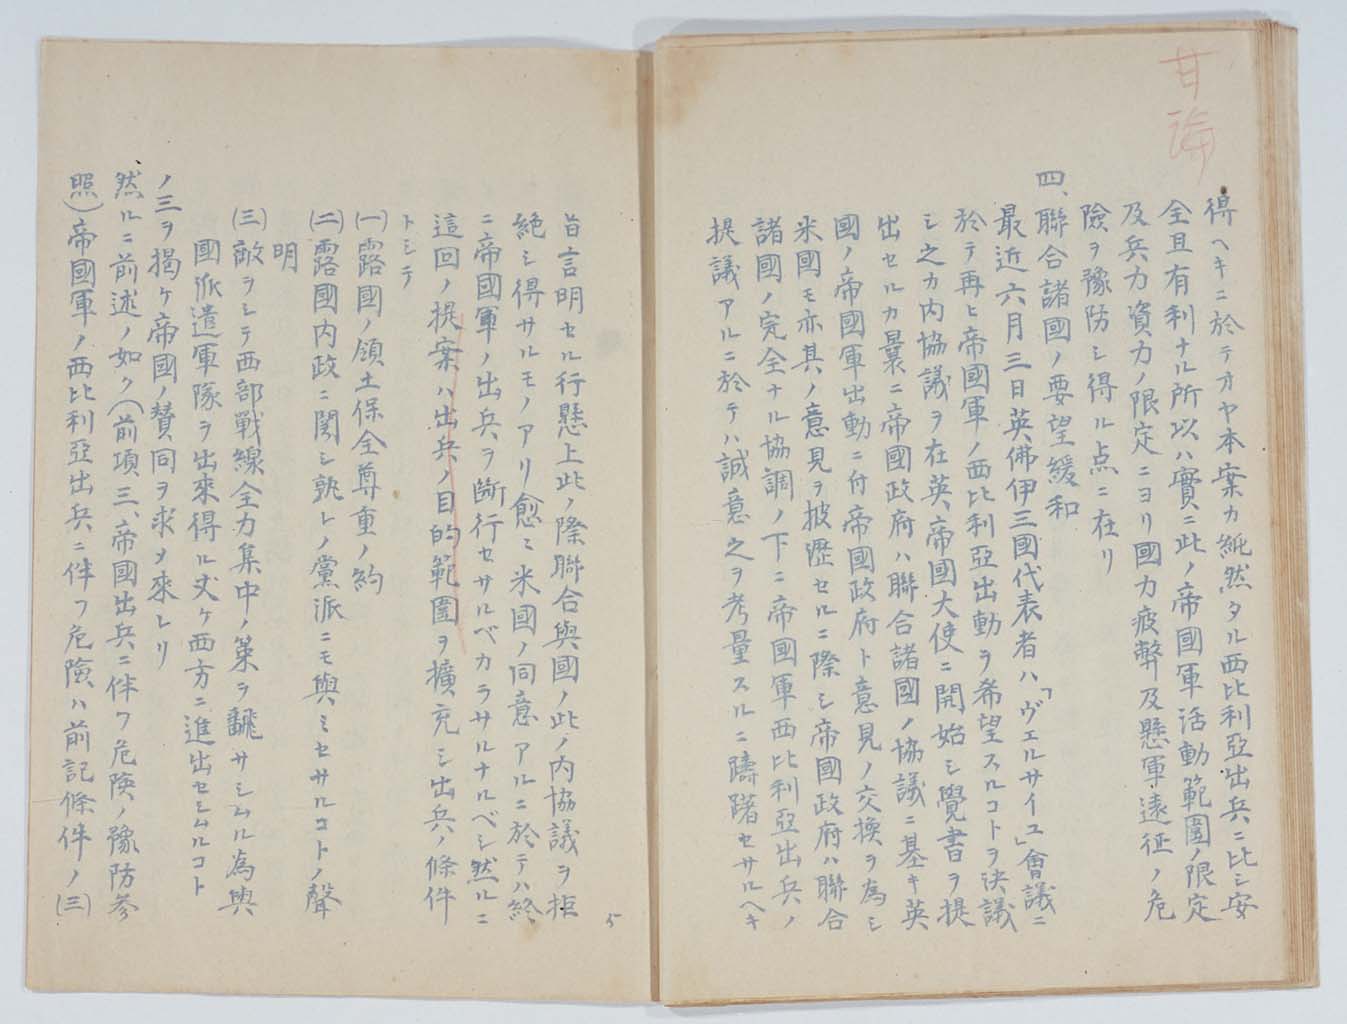 甘論
得ヘキニ於テオヤ本案カ純然タル西比利亞出兵ニ比シ安
全且有利ナル所以ハ實ニ此ノ帝國軍活動範圍ノ限定
及兵力資力ノ限定ニヨリ國力疲弊及懸軍遠征ノ危
險ヲ豫防シ得ル点ニ在リ
四、聯合諸國ノ要望緩和
最近六月三日英佛伊三國代表者ハ「ヴェルサイユ」會議ニ
於テ再ヒ帝國軍ノ西比利亞出動ヲ希望スルコトヲ決議
シ之カ内協議ヲ在英帝國大使ニ開始シ覺書ヲ提
出セルカ曩ニ帝國政府ハ聯合諸國ノ協議ニ基キ英
國ノ帝國軍出動ニ付帝國政府ト意見ノ交換ヲ為シ
米國モ亦其ノ意見ヲ披瀝セルニ際シ帝國政府ハ聯合
諸國ノ完全ナル協調ノ下ニ帝國軍西比利亞出兵ノ
提議アルニ於テハ誠意之ヲ考量スルニ躊躇セサルヘキ
5
旨言明セル行懸上此ノ際聯合與國ノ此ノ内協議ヲ拒
絶シ得サルモノアリ愈ミ米國ノ同意アルニ於テハ終
ニ帝國軍ノ出兵ヲ斷行セサルベカラサルナルベシ然ルニ
這回ノ提案ハ出兵ノ目的範圍ヲ擴充シ出兵ノ條件
トシテ
(一)露國ノ領土保全尊重ノ約
(二)露國内政ニ関シ孰レノ黨派ニモ與ミセサルコトノ聲
明
(三)敵ヲシテ西部戰線全力集中ノ策ヲ飜サシムル為與
國派遣軍隊ヲ出來得ル丈ケ西方ニ進出セシムルコト
ノ三ヲ揭ケ帝國ノ賛同ヲ求メ來レリ
然ルニ前述ノ如ク(前項三、帝國出兵ニ伴フ危険ノ豫防参
照)帝國軍ノ西比利亞出兵ニ伴フ危険ハ前記條件ノ(三)